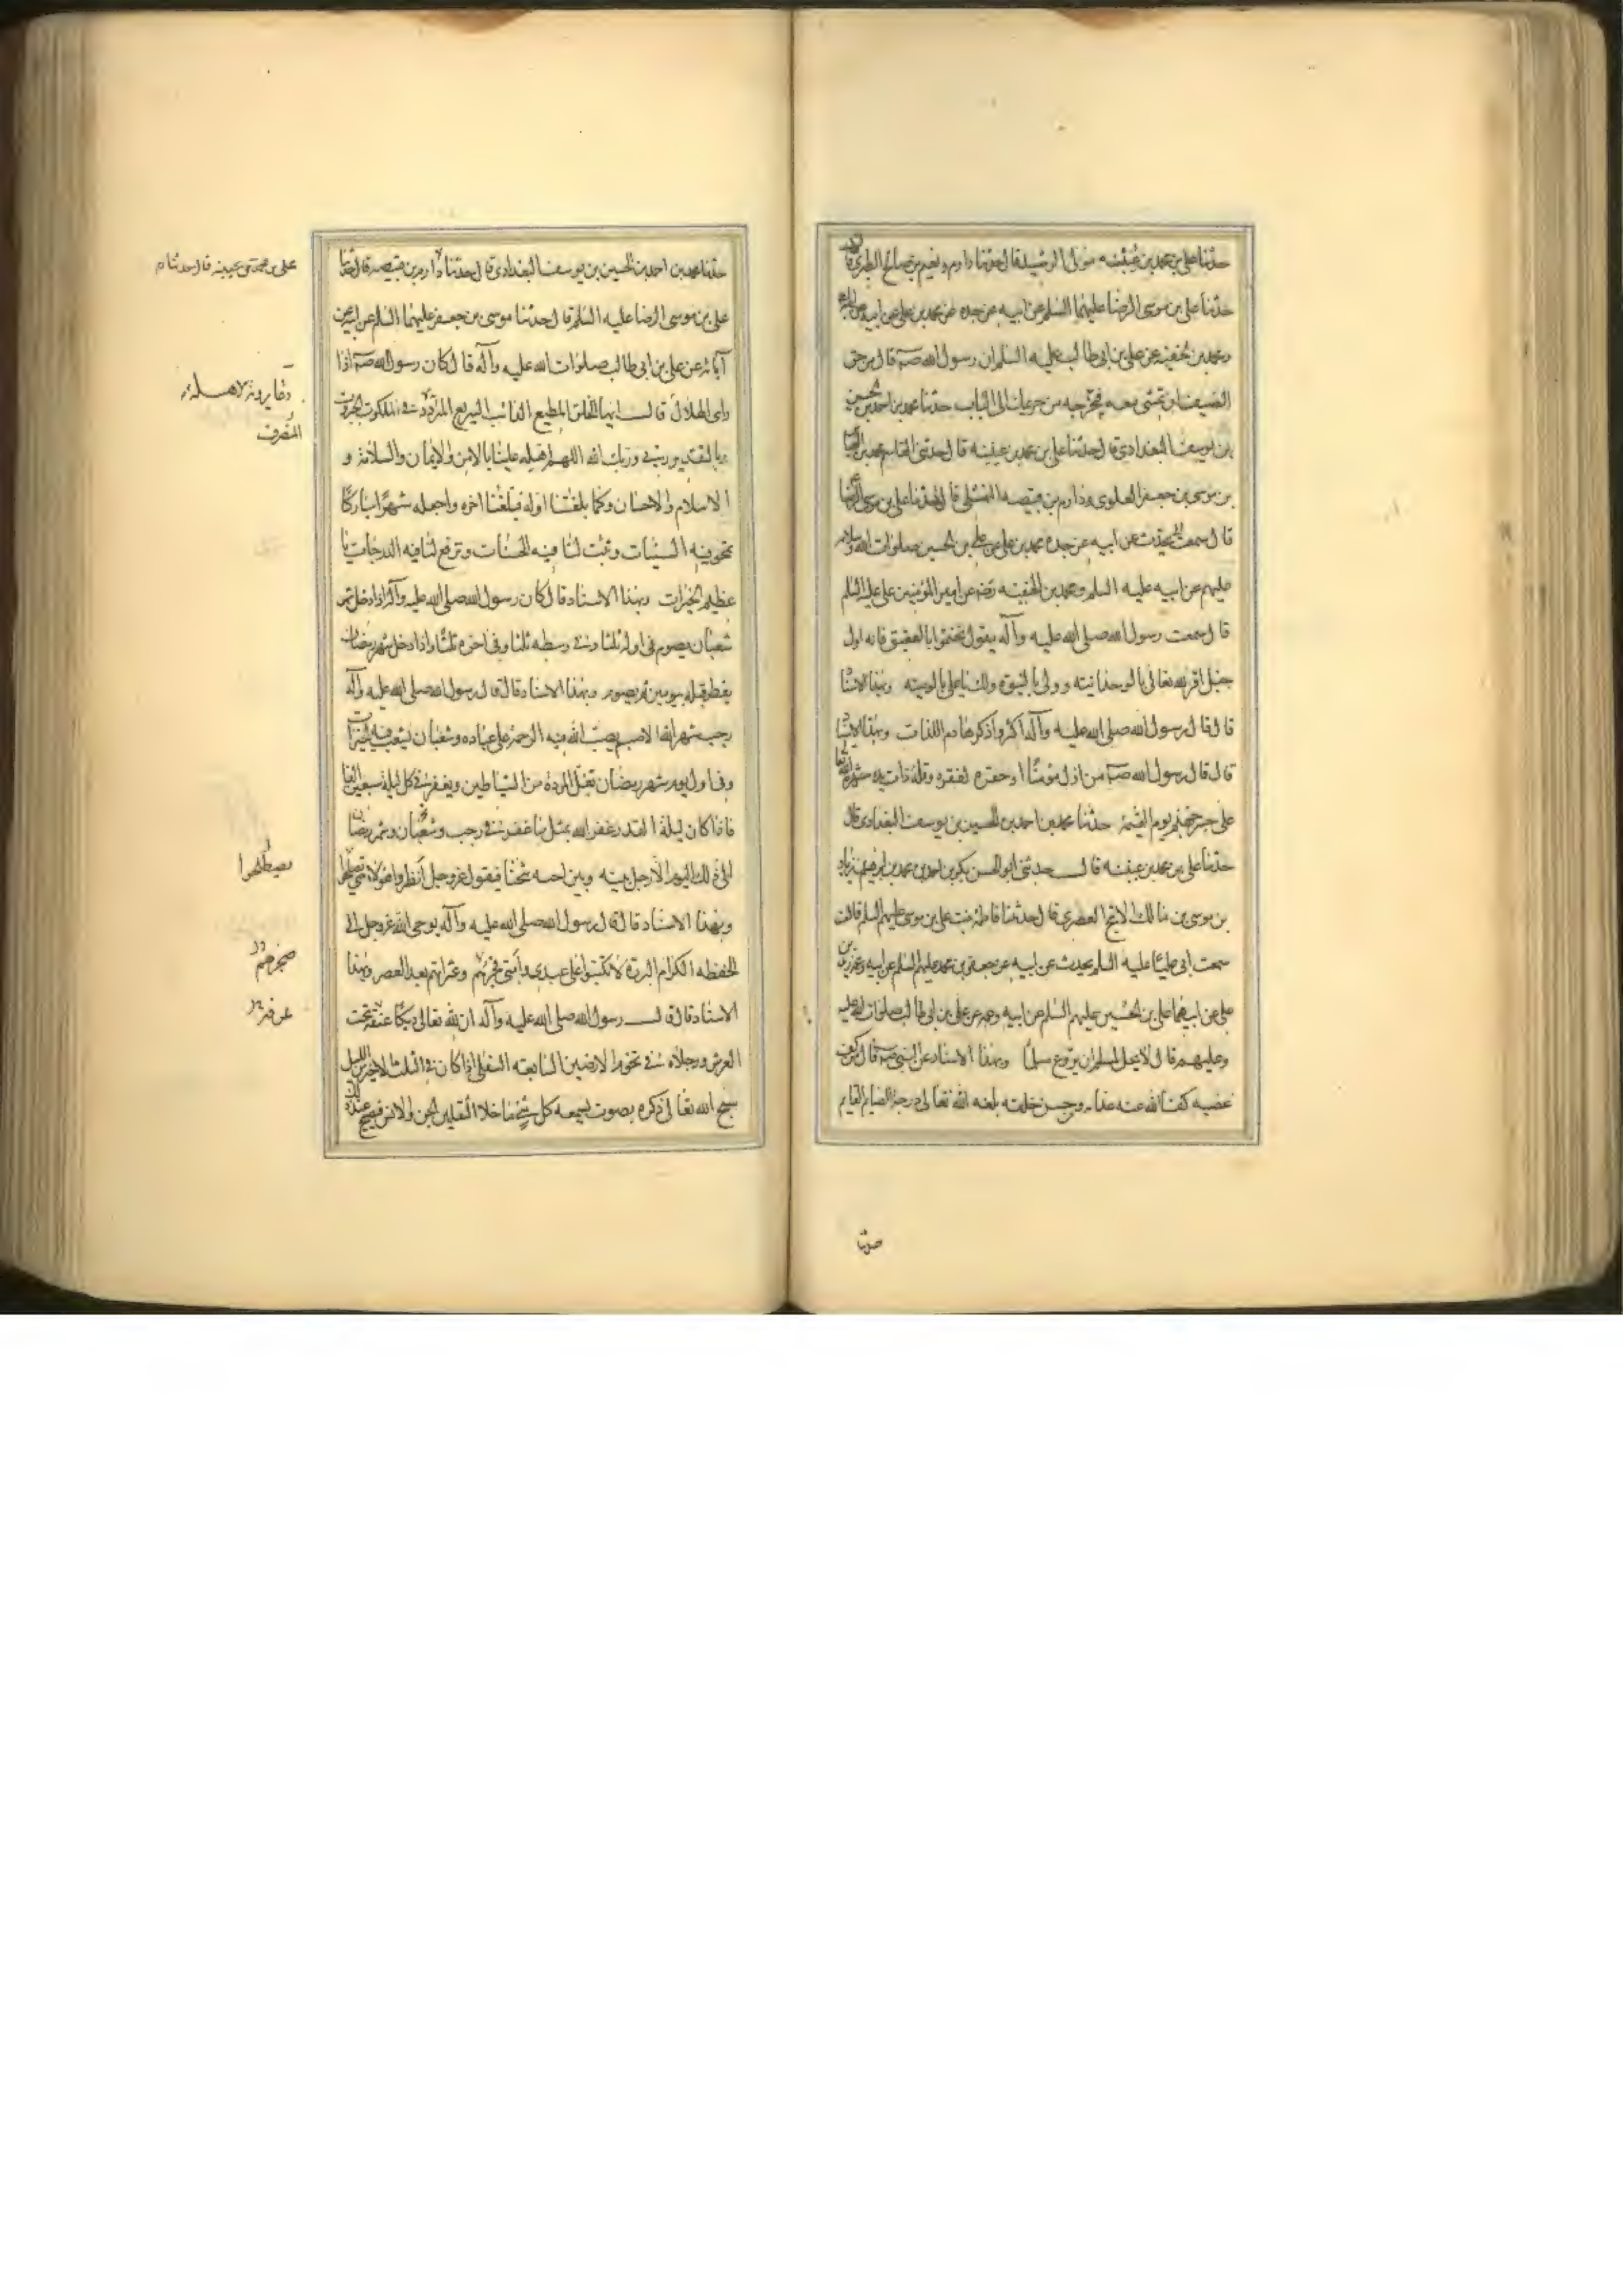 حدثنا علي بن محمد بن عيينه مولى الرشيد قال حدثنا دارم ونعيم بن صالح الطبري قالا
حدثنا علي بن موسى الرضا عليهما السلم عن ابيه عن جده عن محمد بن علي عن ابيه
ومحمد بن حنفيه عن علي بن ابي طالب عليه السلم ان رسول الله صـ قال من حق
الضيف ان تمشى معه فتخرجه من حريمك الى الباب حدثنا محمد بن احمد بن الحسين
بن يوسف البغدادي قال حدثنا علي بن محمد بن عيينه قال حدثني القاسم بن محمد بن العباس
بن موسى بن جعفر العلوي ودارم بن قبيصه النهشلي قالا حدثنا علي بن موسى الرضا
قال سمعت ابي يحدث عن ابيه عن جده محمد بن علي عن علي بن الحسين صلوات الله وسلامه
عليهم عن ابيه عليه السلم ومحمد بن الحنفيه رضه عن امير المؤمنين علي عليه السلم
قال سمعت رسول الله صلى الله عليه وآله يقول تختموا بالعقيق فانه اول
جبل اقر لله تعالى بالوحدانيته وولي بالنبوة ولك يا علي بالوصيته وبهذا الاسناد
قال قال رسول الله صلى الله عليه وآله اكثروا ذكر هادم اللذات وبهذا الاسناد
قال قال رسول الله صـ من اذل مؤمنا او حقره لفقره وقلة ذات يده شهره الله تعا
على جسر جهنم يوم القيمة حدثنا محمد بن احمد بن الحسين بن يوسف البغدادي قال
حدثنا علي بن محمد بن عيينه قال حدثني ابو الحسن بكر بن احمد بن محمد بن ابرهيم بن زياد
بن موسى بن مالك الاشج العصري قال حدثتنا فاطمة بنت علي بن موسى عليهم السلم قالت
سمعت ابي عليا عليه السلم يحدث عن ابيه عن جعفر بن محمد عليهم السلم عن ابيه وعمه زيد بن
علي عن ابيهما علي بن الحسين عليهم السلم عن ابيه وعمه عن علي بن ابي طالب صلوات الله عليه
وعليهم قال لا يحل لمسلم ان يروع مسلما وبهذا الاسناد عن النبي صـ قال من كف
غضبه كف الله عنه عذابه ومن حسن خلقه بلغه الله تعالى درجة الصائم القايم
حدثنا
حدثنا محمد بن احمد بن الحسين بن يوسف البغدادي قال حدثنا دارم بن قبيصه قال حدثنا
علي بن موسى الرضا عليه السلم قال حدثنا موسى بن جعفر عليهما السلم عن ابيه عن
آبائه عن علي بن ابي طالب صلوات الله عليه وآله قال كان رسول الله صـ اذا
راى الهلال قال ايها الخلق المطيع الدائب السريع المتردد في الملكوت الجبروت
بالتقدير ربي وربك الله اللهم اهله علينا بالامن والايمان والسلامة و
الاسلام والاحسان وكما بلغتنا اوله فبلغنا اخره واجعله شهرا مباركا
تمحو فيه السيئات وتثبت لنا فيه الحسنات وترفع لنا فيه الدرجات يا
عظيم الخيرات وبهذا الاسناد قال كان رسول الله صلى الله عليه وآله اذا دخل شهر
شعبان يصوم في اوله ثلثا وفي وسطه ثلثا وفي اخره ثلثا واذا دخل شهر رمضان
يفطر قبله بيومين ثم يصوم وبهذا الاسناد قال قال رسول الله صلى الله عليه وآله
رجب شهر الله الاصب يصب الله فيه الرحمة على عباده وشعبان تشعب فيه الخيرات
وفي اول يوم شهر رمضان تغل المردة من الشياطين ويغفر في كل ليلة سبعين الفا
فاذا كان ليلة القدر غفر الله بمثل ما غفر في رجب وشعبان وشهر رمضان
الى ذلك اليوم الا رجل بينه وبين اخيه شحنا فيقول عز وجل انظروا هؤلاء حتى يصطلحوا
وبهذا الاسناد قال قال رسول الله صلى الله عليه وآله يوحى الله عز وجل الى
الحفظه الكرام البررة لا تكتبوا على عبدي وامتي ضجرهم وعثراتهم بعد العصر وبهذا
الاسناد قال قال رسول الله صلى الله عليه وآله ان لله تعالى ديكا عنقه تحت
العرش ورجلاه في تخوم الارضين السابعه السفلى اذا كان في الثلث الاخير من الليل
سبح الله تعالى ذكره بصوت يسمعه كل شئ ما خلا الثقلين الجن والانس فيصيح عند ذلك
علي بن محمد بن عيينه قال حدثنا م
المتصرف
يصطلحوا
ضجرهم